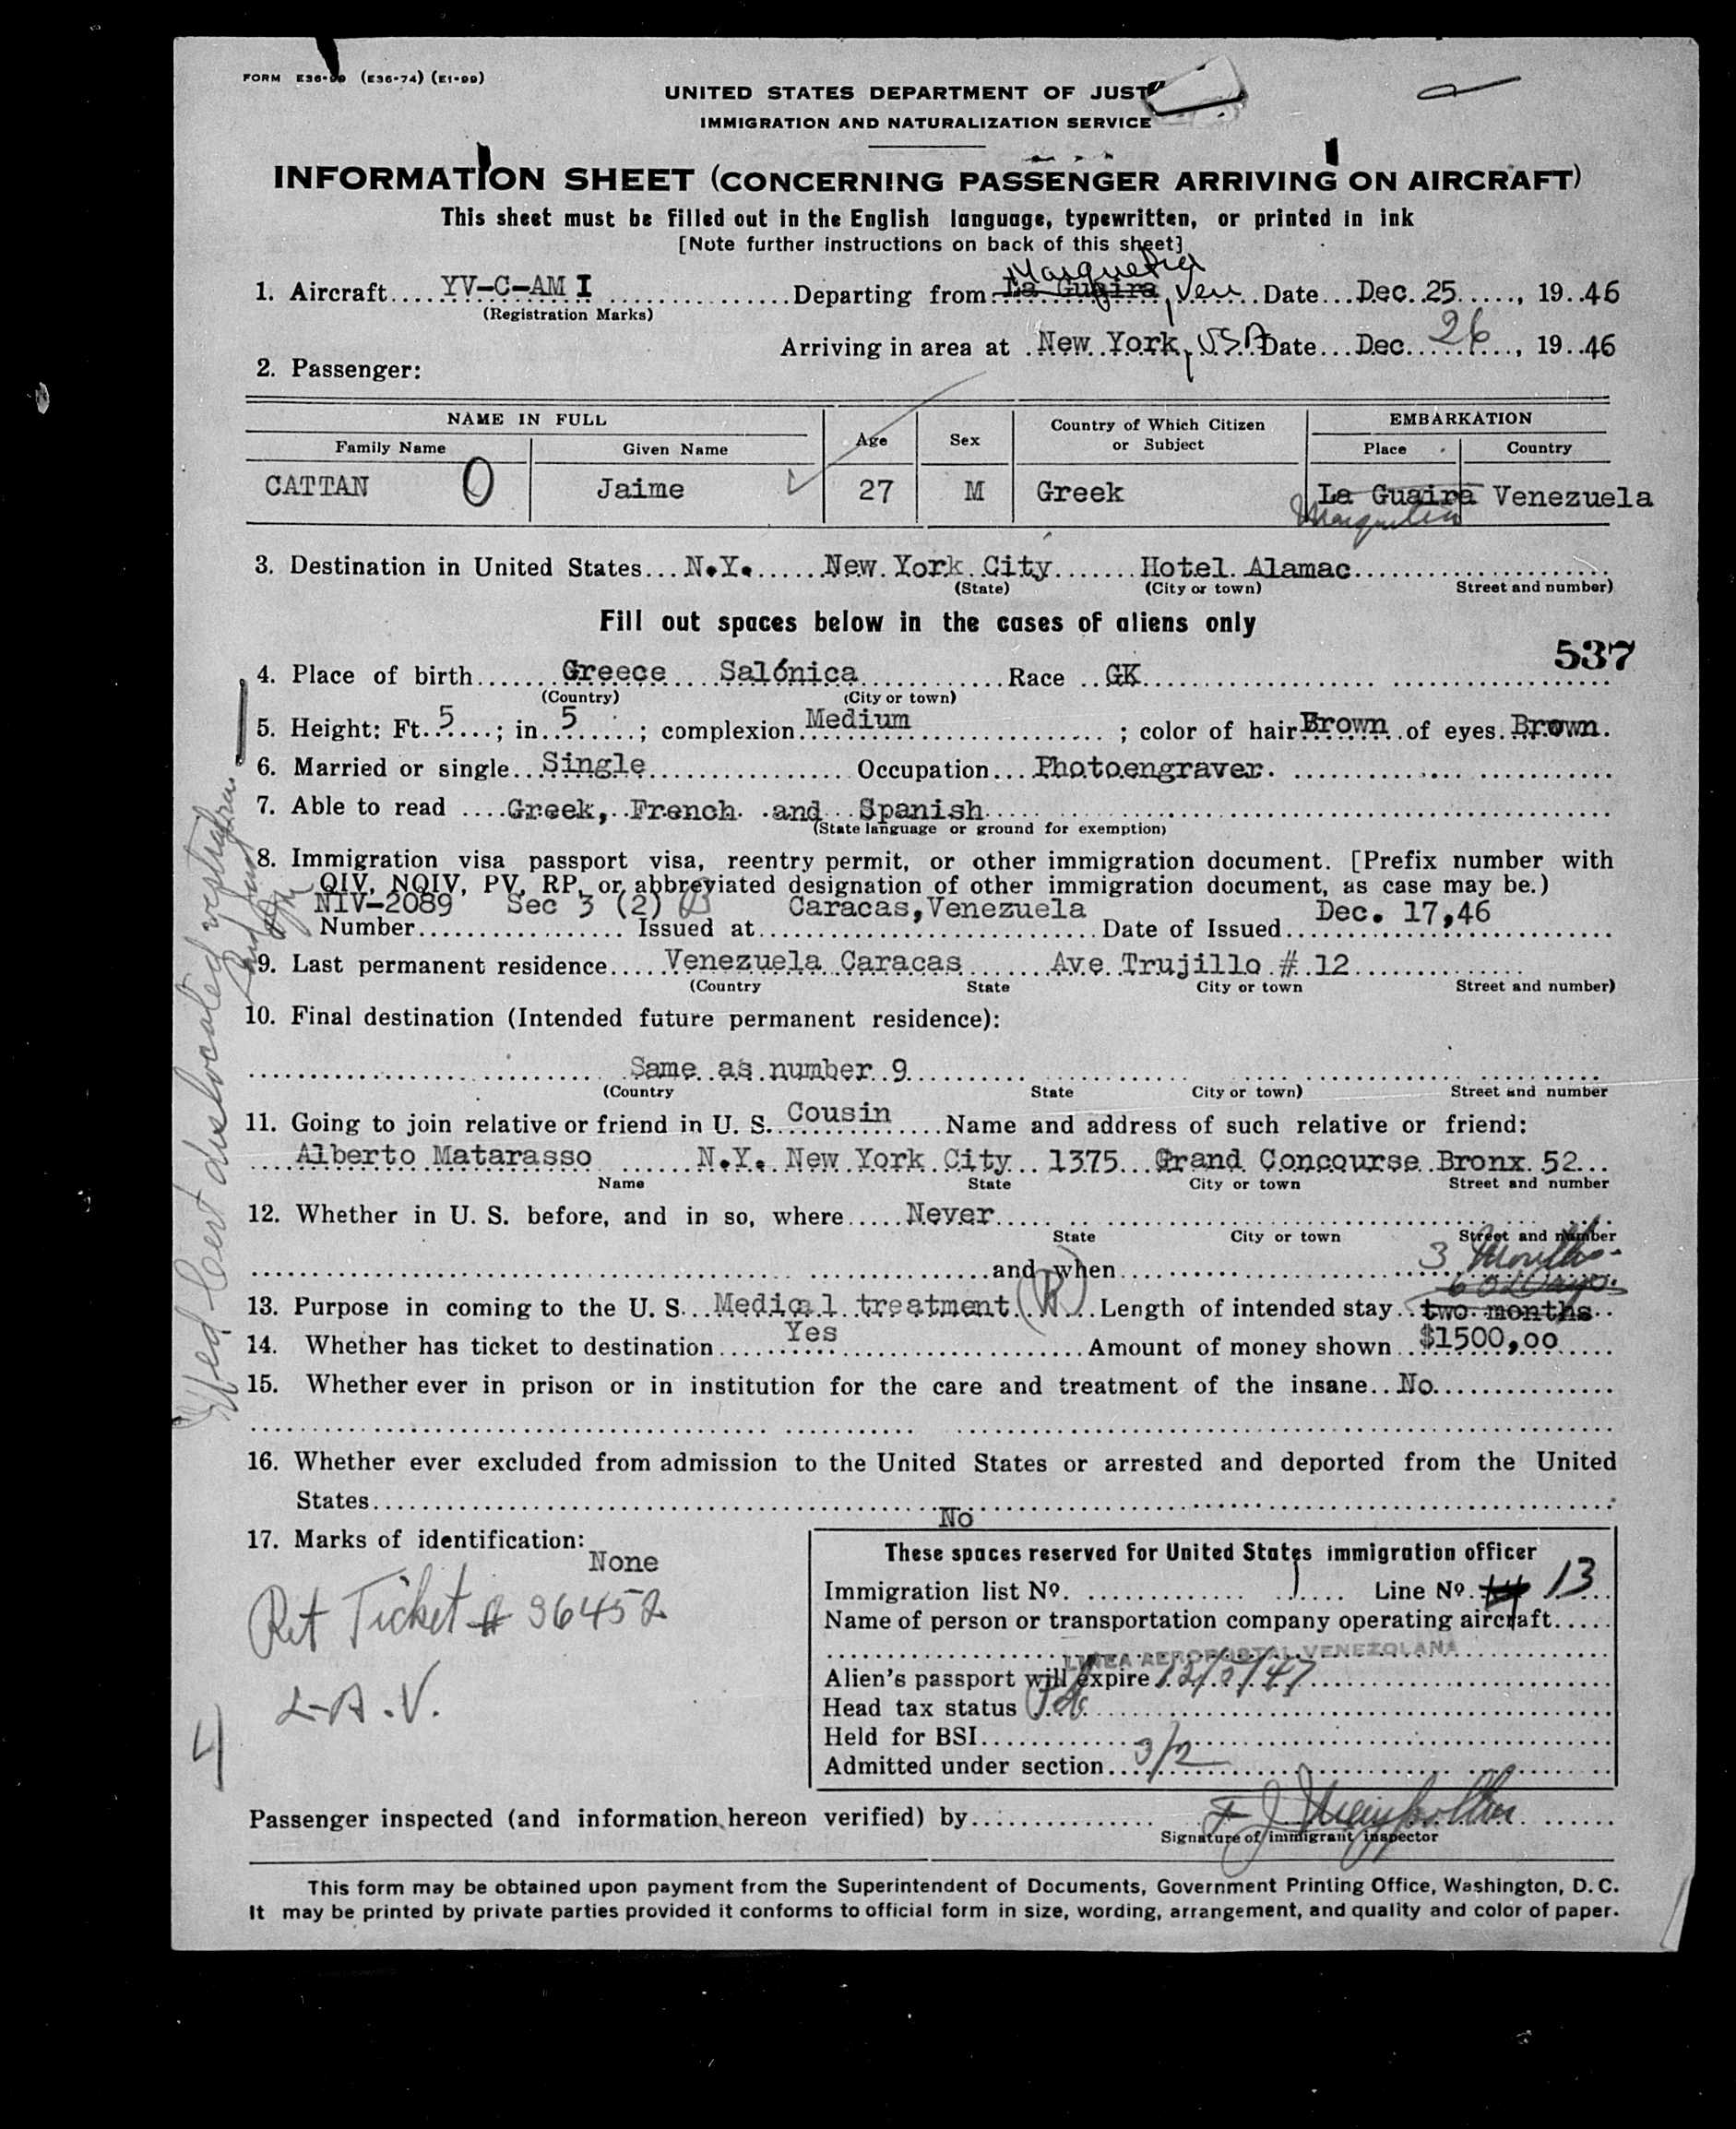 FORM E36-99 (E36-74) (E1-99)
UNITED STATES DEPARTMENT OF JUST
IMMIGRATION AND NATURALIZATION SERVICE
INFORMATION SHEET (CONCERNING PASSENGER ARRIVING ON AIRCRAFT)
This sheet must be filled out in the English language, typewritten, or printed in ink
[Note further instructions on back of this sheet]
Maiquetia
1. Aircraft YV-C-AM I Departing from La Guaira, Ven Date Dec. 25, 19 46
(Registration Marks)
Arriving in area at New York, USA Date Dec. 26, 19 46
2. Passenger:
NAME IN FULL Age Sex Country of Which Citizen or Subject EMBARKATION
Family Name Given Name Place Country
CATTAN O Jaime 27 M Greek La Guaira Venezuela
Maiquetia
3. Destination in United States N.Y. New York City Hotel Alamac
(State) (City or town) Street and number)
Fill out spaces below in the cases of aliens only
537
4. Place of birth Greece Salónica Race GK
(Country) (City or town)
5. Height: Ft. 5; in 5; complexion Medium; color of hair Brown of eyes Brown.
6. Married or single Single Occupation Photoengraver.
7. Able to read Greek, French and Spanish
(State language or ground for exemption)
8. Immigration visa passport visa, reentry permit, or other immigration document. [Prefix number with
QIV, NQIV, PV, RP, or abbreviated designation of other immigration document, as case may be.)
NIV-2089 Sec 3 (2) B Caracas, Venezuela Dec. 17,46
Number Issued at Date of Issued
9. Last permanent residence Venezuela Caracas Ave Trujillo # 12
(Country State City or town Street and number)
10. Final destination (Intended future permanent residence):
Same as number 9
(Country State City or town) Street and number
11. Going to join relative or friend in U. S. Cousin Name and address of such relative or friend:
Alberto Matarasso N.Y. New York City 1375 Grand Concourse Bronx 52
Name State City or town Street and number
12. Whether in U. S. before, and in so, where Never
State City or town Street and number
3 Months
and when
60 Days
13. Purpose in coming to the U. S. Medical treatment Length of intended stay two months
14. Whether has ticket to destination Yes Amount of money shown $1500,00
15. Whether ever in prison or in institution for the care and treatment of the insane No
16. Whether ever excluded from admission to the United States or arrested and deported from the United
States No
17. Marks of identification:
None
Ret Ticket # 36452
L-A.V.
4
These spaces reserved for United States immigration officer
Immigration list No. 1 Line No. 13
Name of person or transportation company operating aircraft
LINEA AEROPOSTAL VENEZOLANA
Alien's passport will expire
Head tax status
Held for BSI
Admitted under section 3/2
Passenger inspected (and information hereon verified) by
Signature of immigrant inspector
This form may be obtained upon payment from the Superintendent of Documents, Government Printing Office, Washington, D. C.
It may be printed by private parties provided it conforms to official form in size, wording, arrangement, and quality and color of paper.
Med Cert